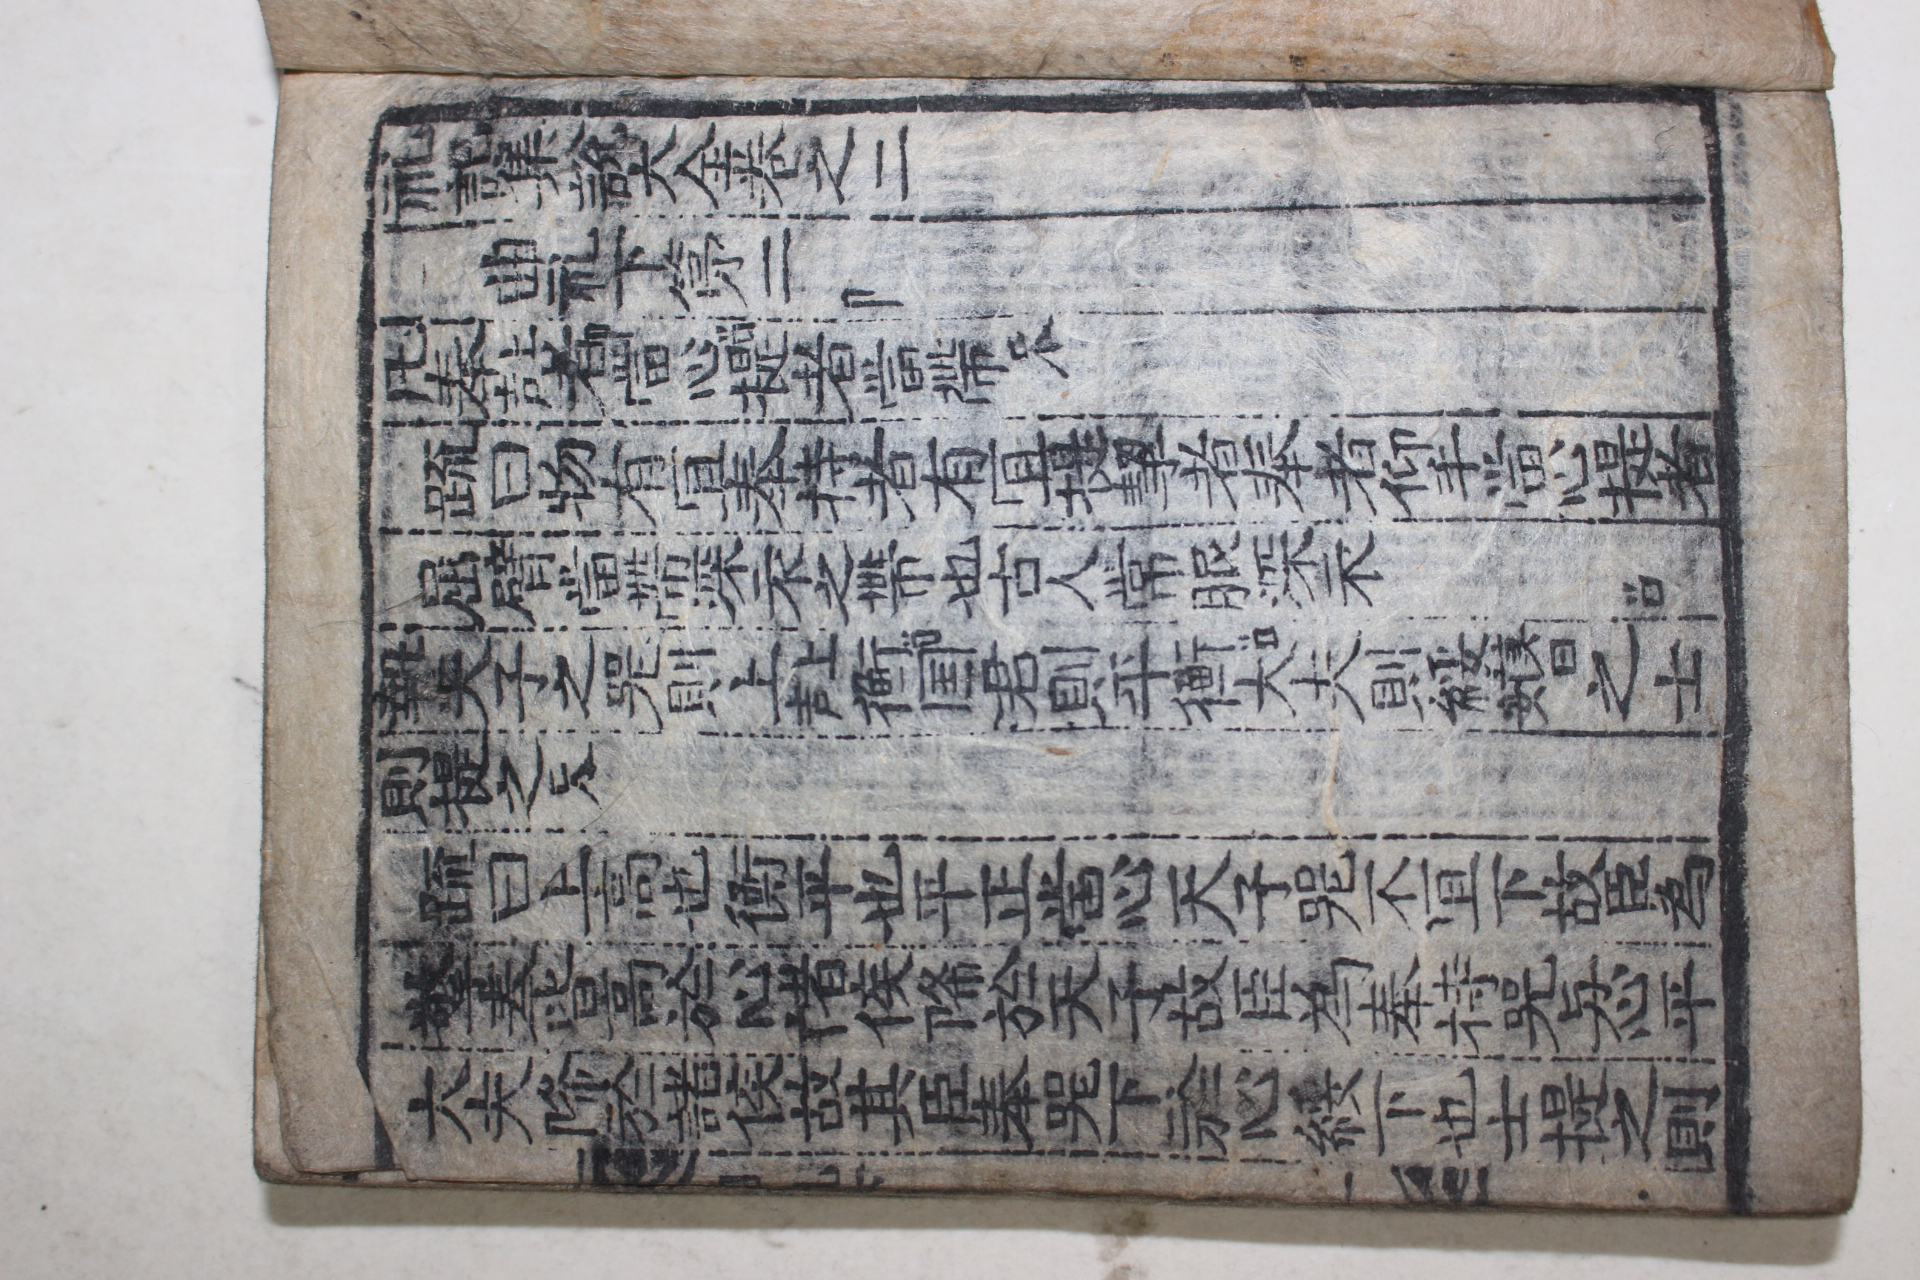 礼記集說大全卷之二
曲礼下第二
凡奉者當心提者當帶
疏曰物有宜奉持者有宜提挈者奉者仰手當心提者
屈臂當帶深衣之帶也古人常服深衣
執天子之器則上衡國君則平衡大夫則綏之士
則提之
疏曰上高也衡平也平正當心天子器不宜下故臣為
擎奉皆高於心諸侯降於天子故臣為奉持器与心平
大夫降於諸侯故其臣奉器下於心綏下也士提之則